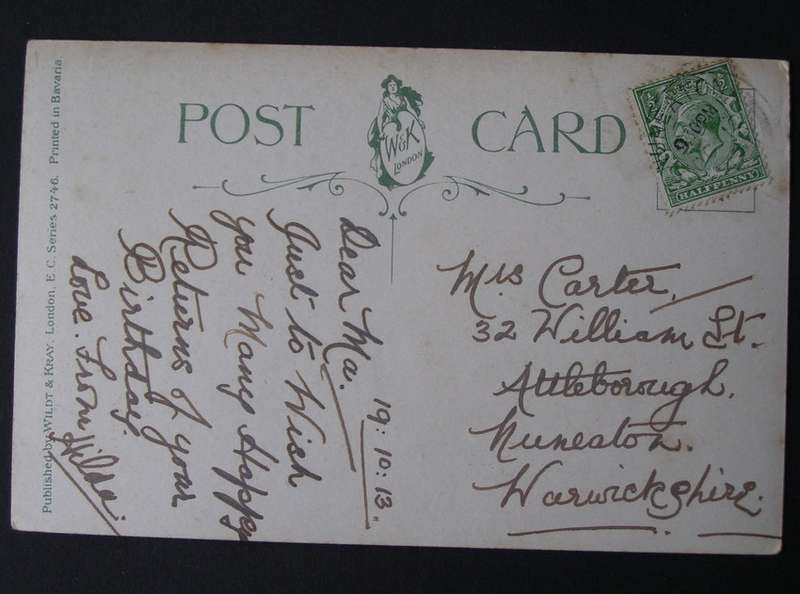 POST CARD
W&K
LONDON
HALFPENNY
Published by WILDT & KRAY, London, E.C. Series 2746. Printed in Bavaria.
19:10:13.
Dear Ma.
Just to Wish
you Many Happy
Returns of your
Birthday.
Love. From Hilda.
Mrs Carter.
32 William St.
Attleborough.
Nuneaton.
Warwickshire.